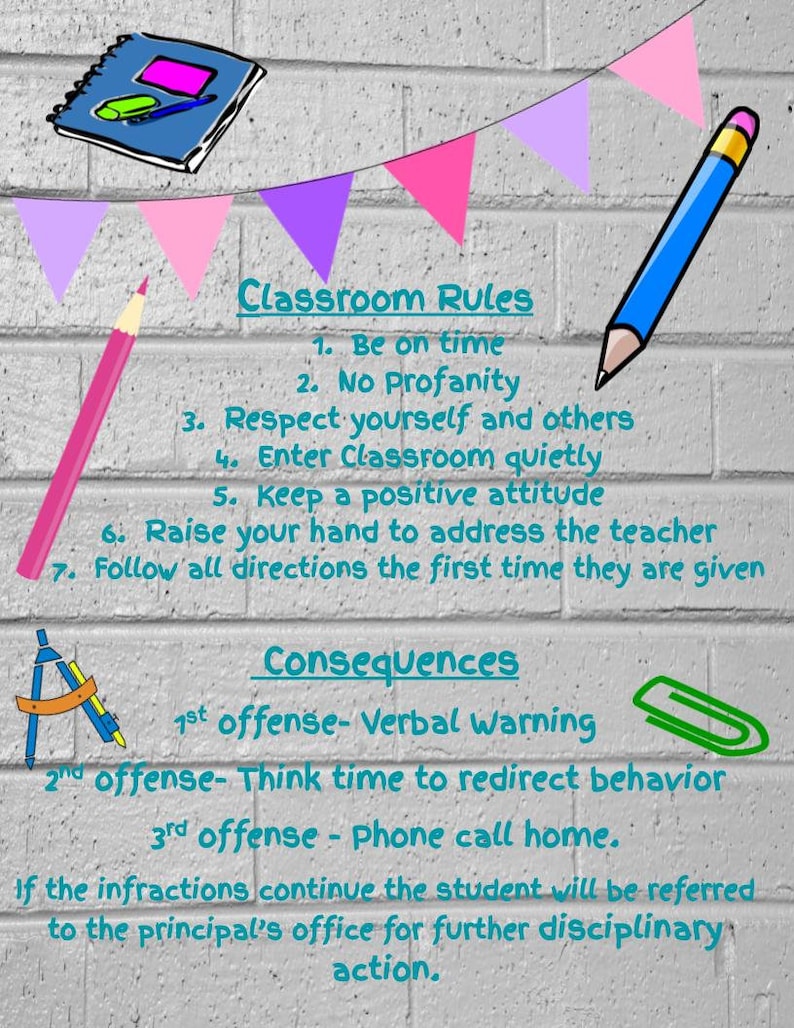 Classroom Rules
1. Be on time
2. No Profanity
3. Respect yourself and others
4. Enter Classroom quietly
5. Keep a positive attitude
6. Raise your hand to address the teacher
7. Follow all directions the first time they are given
Consequences
1st offense- Verbal Warning
2nd offense- Think time to redirect behavior
3rd offense - Phone call home.
If the infractions continue the student will be referred
to the principal's office for further disciplinary
action.